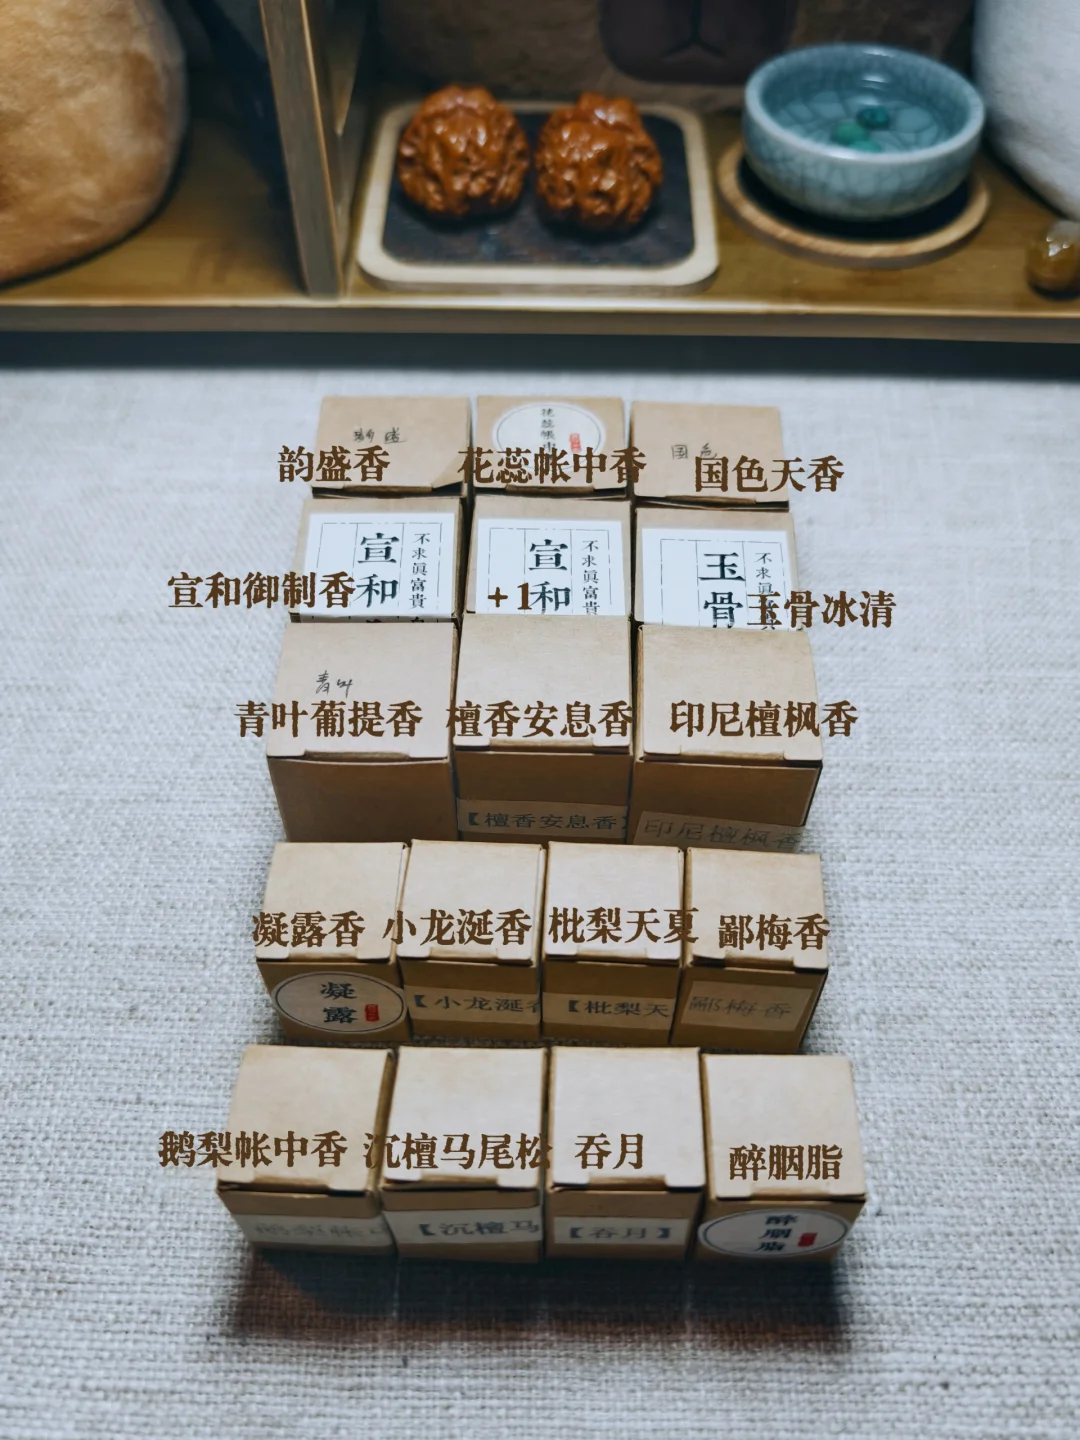 韵盛
花蕊帐中香
国色
韵盛香
花蕊帐中香
国色天香
宣和
不求真富貴
宣和
不求真富貴
玉骨
不求真
宣和御制香
+1
玉骨冰清
青叶
青叶葡提香
檀香安息香
印尼檀枫香
【檀香安息香】
印尼檀枫香
凝露香
小龙涎香
枇梨天夏
鄙梅香
凝露
【小龙涎香
【枇梨天
鄙梅香
鹅梨帐中香
沉檀马尾松
吞月
醉胭脂
鹅梨帐
【沉檀马
【吞月】
醉胭脂